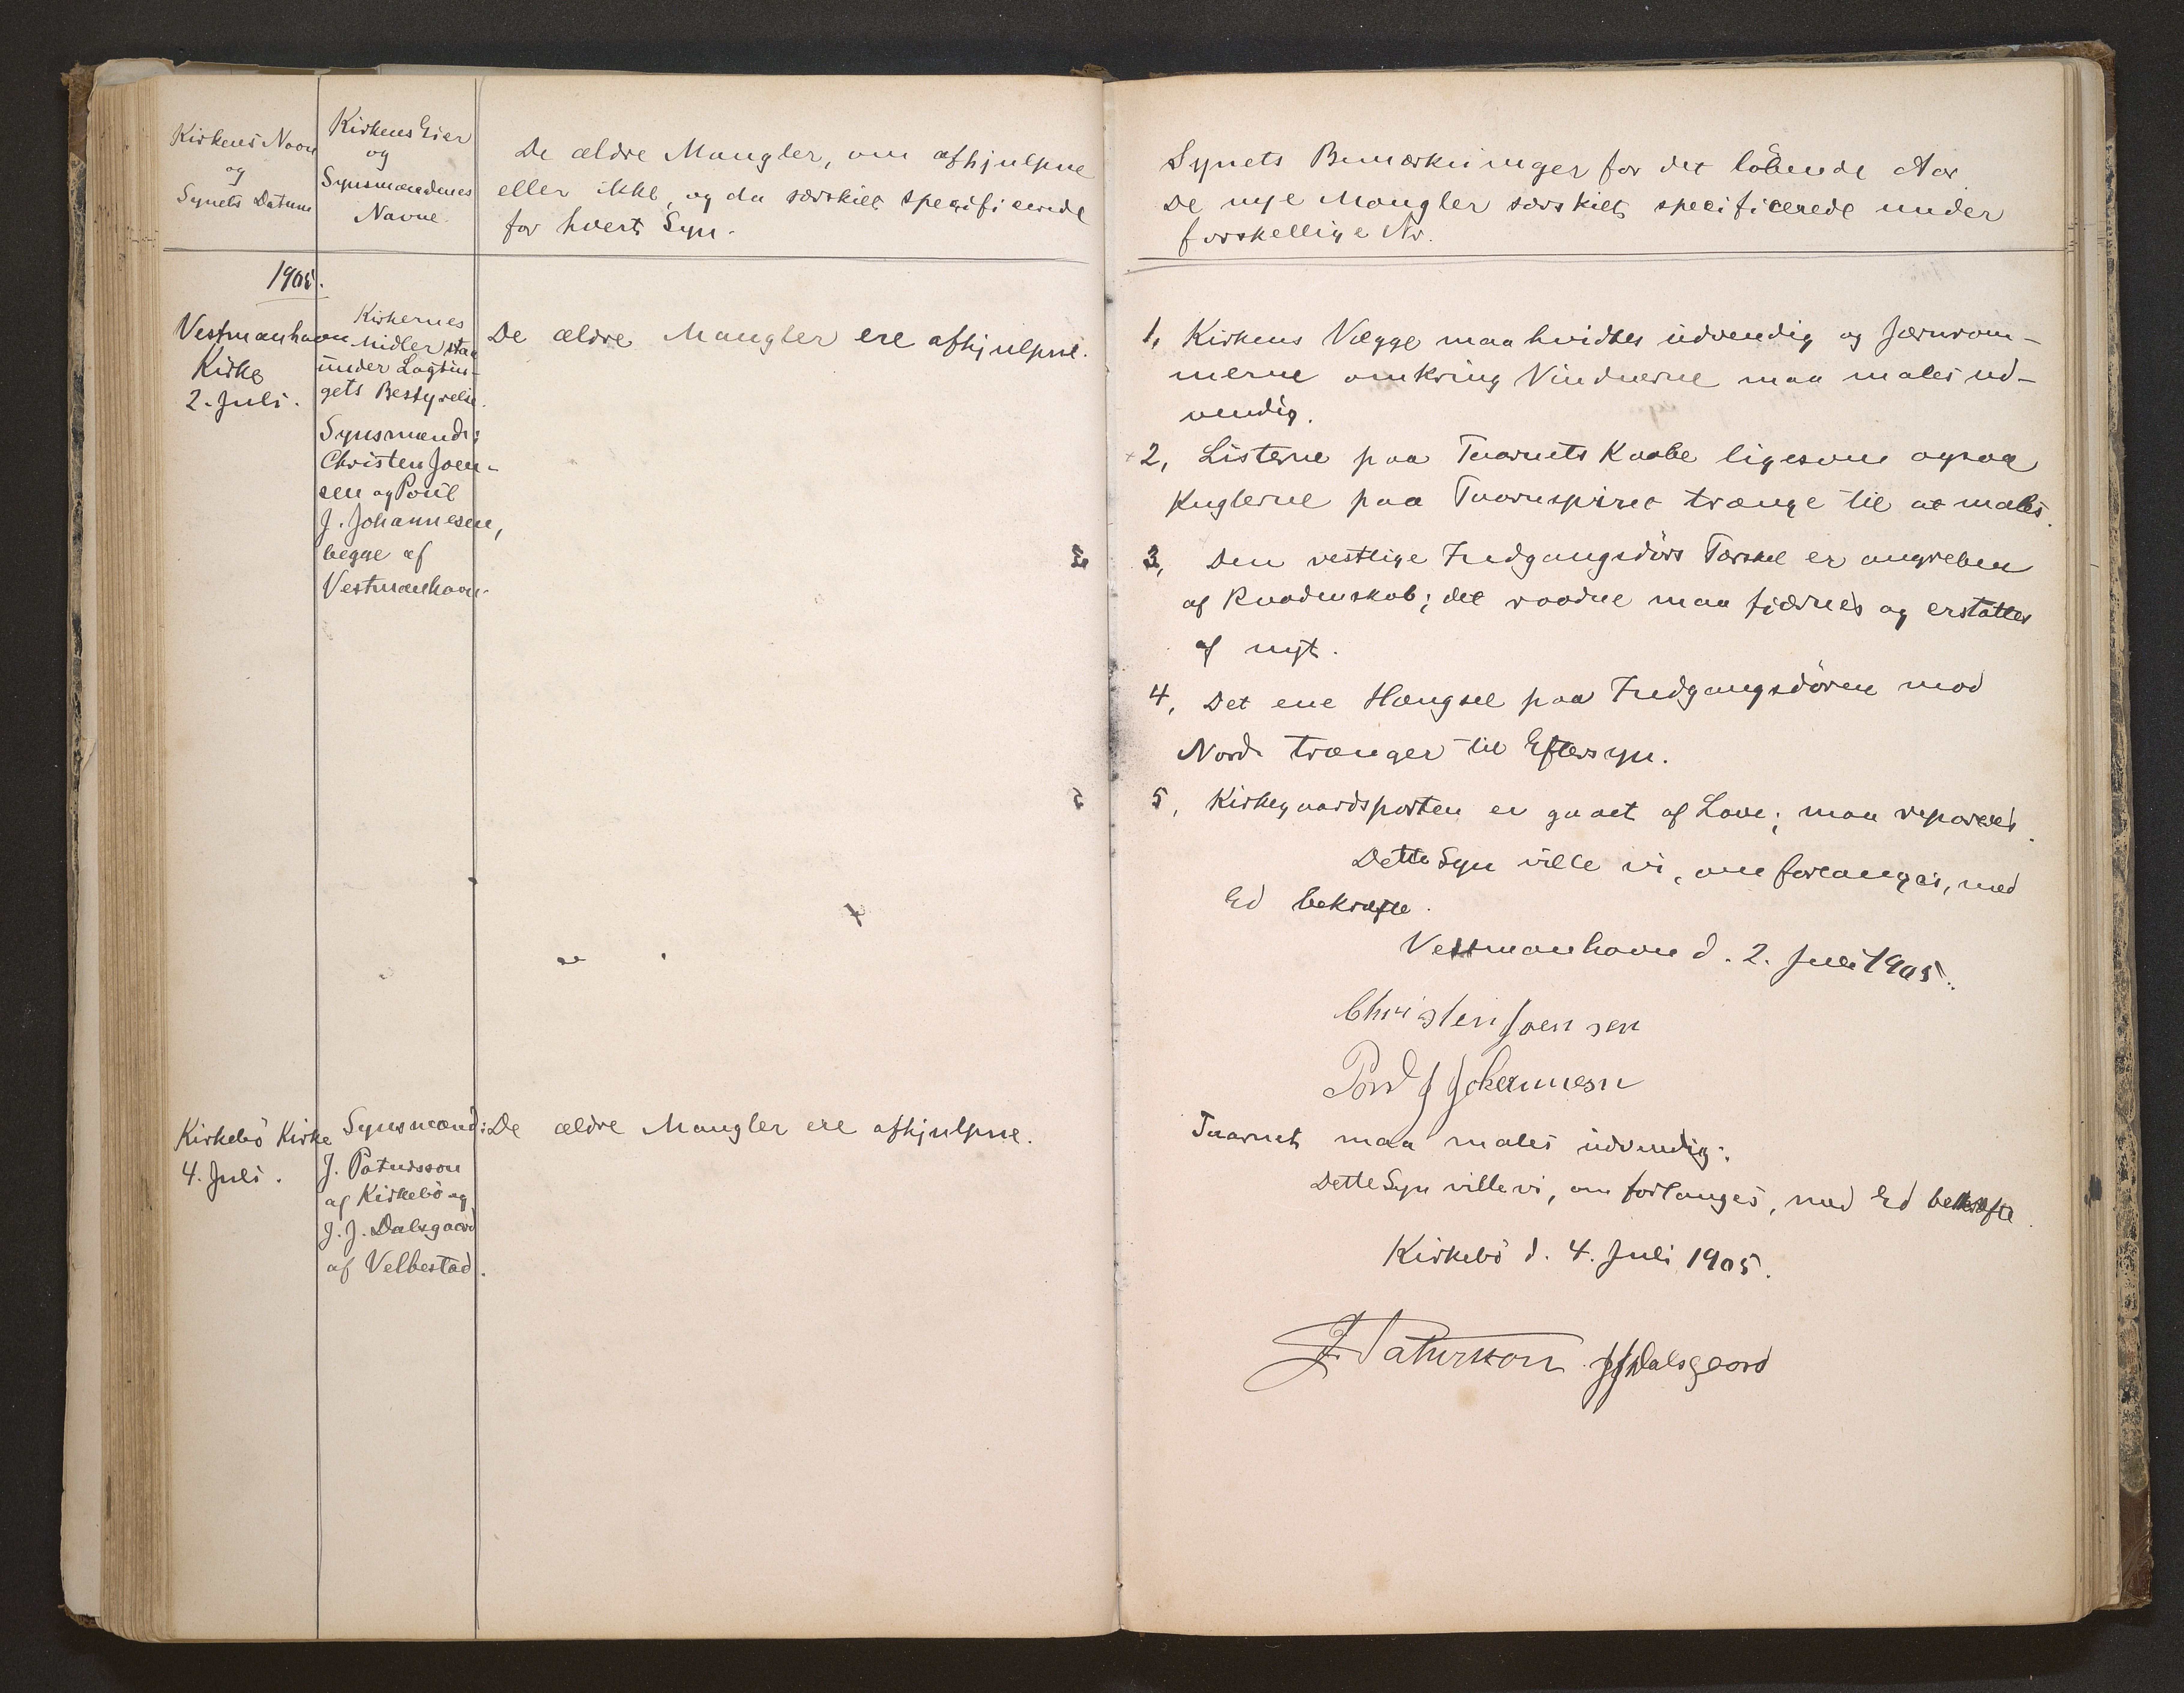 Kirkens Navn
og
Synets Datum
Kirkens Eier
og
Synsmændenes
Navne.
De ældre Mangler, om afhjulpne
eller ikke, og da særskilt specificerede
for hvert Syn.
1905.
Vestmanhavn
Kirke
2. Juli.
Kirkernes
Midler staa
under Lagtin-
gets Bestyrelse.
Synsmænd:
Christen Joen-
sen og Poul
J. Johannesen,
begge af
Vestmanhavn.
De ældre Mangler ere afhjulpne.
Kirkebö Kirke
4. Juli.
Synsmænd:
J. Patursson
af Kirkebö og
J. J. Dalsgaard
af Velbestad.
De ældre Mangler ere afhjulpne.
Synets Bemærkninger for det löbende Aar
De nye Mangler særskilt specificerede under
forskellige Nr.
1, Kirkens Vægge maa hvidtes udvendig og Jærnram-
merne omkring Vinduerne maa males ud-
vendig.
2, Listerne paa Taarnets Kaabe ligesom ogsaa
Kuglerne paa Taarnspiret trænge til at males.
3, Den vestlige Indgangsdörs Tærskel er angreben
af Raadenskab; det raadne maa fjærnes og erstattes
af nyt.
4, Det ene Hængsel paa Indgangsdören mod
Nord trænger til Eftersyn.
5, Kirkegaardsporten er gaaet af Lave; maa repareres.
Dette Syn ville vi, om forlanges, med
Ed bekræfte.
Vestmanhavn d. 2. Juli 1905.
Christen Joensen
Poul J Johannesen
Taarnet maa males udvendig.
Dette Syn ville vi, om forlanges, med Ed bekræfte.
Kirkebö d. 4. Juli 1905.
J. Patursson JJDalsgaard